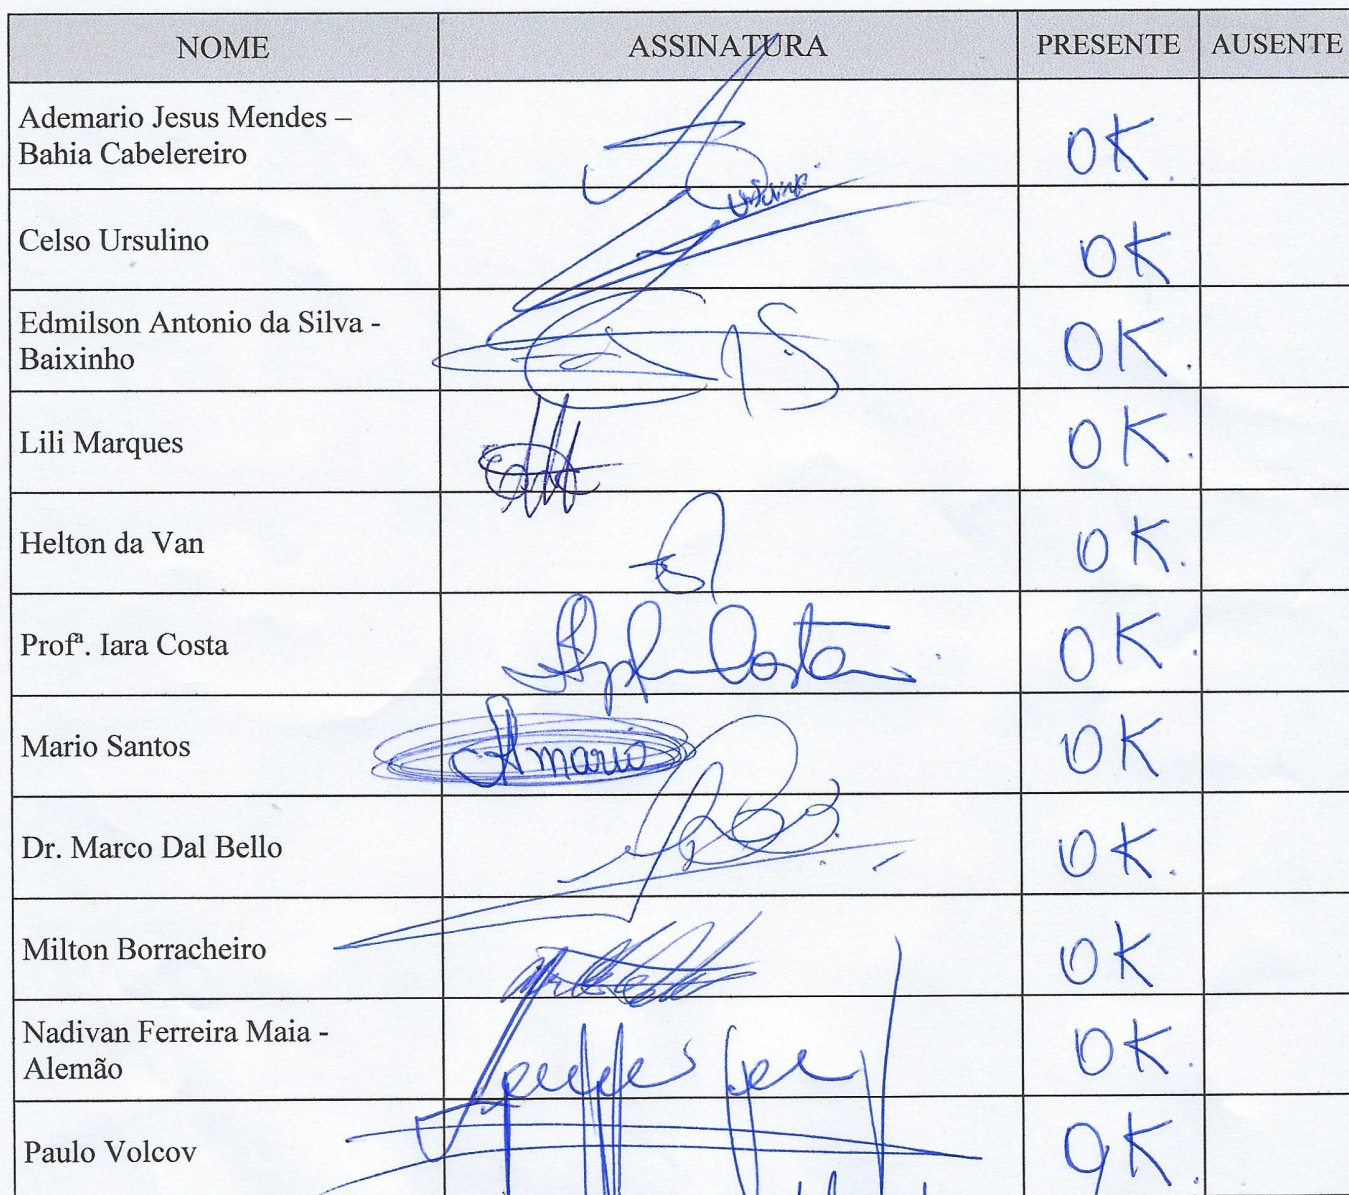 NOME ASSINATURA PRESENTE AUSENTE
Ademario Jesus Mendes –
Bahia Cabelereiro
OK.
Celso Ursulino
OK
Edmilson Antonio da Silva -
Baixinho
OK.
Lili Marques
OK.
Helton da Van
OK.
Profª. Iara Costa
Costa
OK.
Mario Santos
mario
OK
Dr. Marco Dal Bello
OK.
Milton Borracheiro
OK
Nadivan Ferreira Maia -
Alemão
OK.
Paulo Volcov
OK.